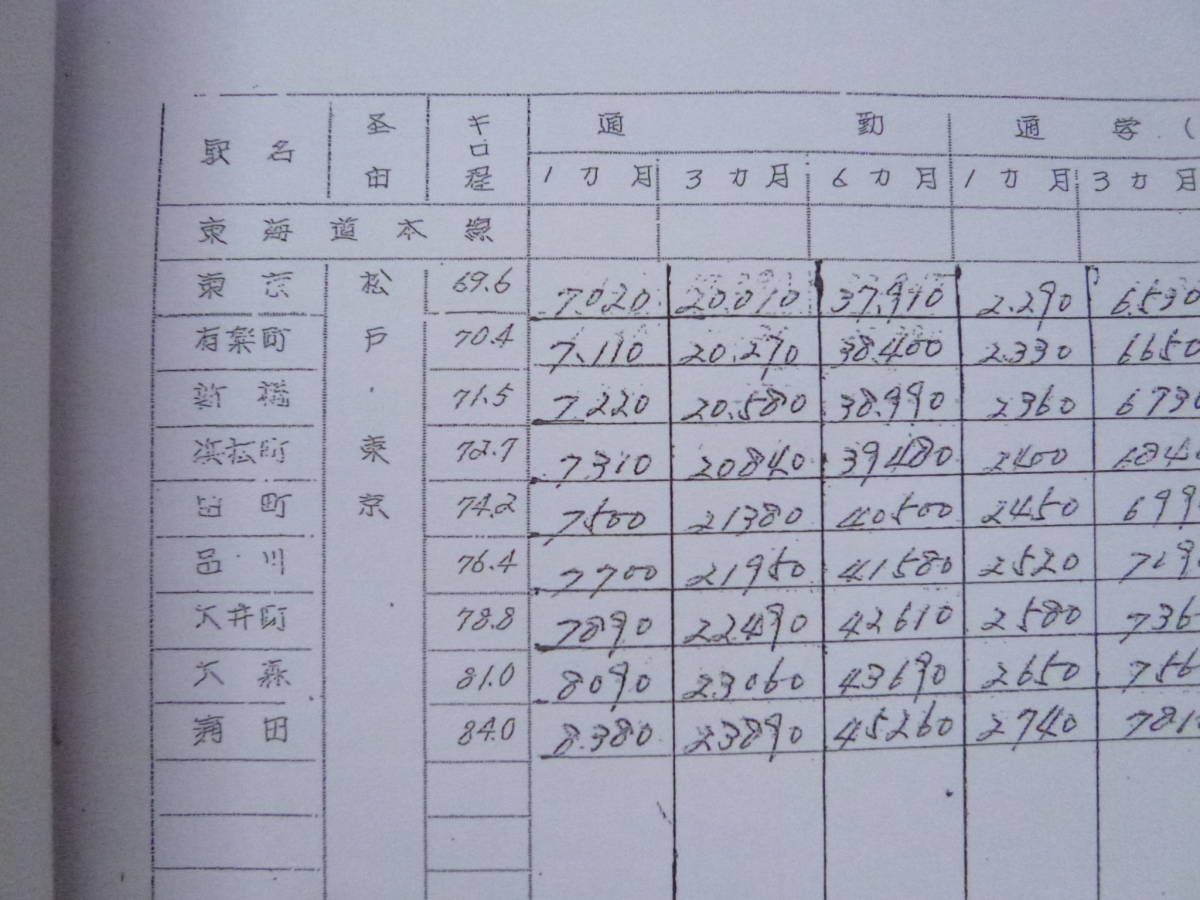 駅名 圣由 キロ程 通勤 通学(
1カ月 3カ月 6カ月 1カ月 3カ月
東海道本線
東京 松 69.6 7.020 20.010 37.910 2.290 6.530
有楽町 戸 70.4 7.110 20.270 38.400 2.330 6650
新橋 ・ 71.5 7.220 20.580 38.990 2360 6730
浜松町 東 72.7 7310 20840 39480 2400 684
田町 京 74.2 7500 21380 40500 2450 699
品川 76.4 7700 21950 41580 2520 719
大井町 78.8 7890 22490 42610 2580 736
大森 81.0 8090 23060 43690 2650 756
蒲田 84.0 8.380 23890 45260 2740 781